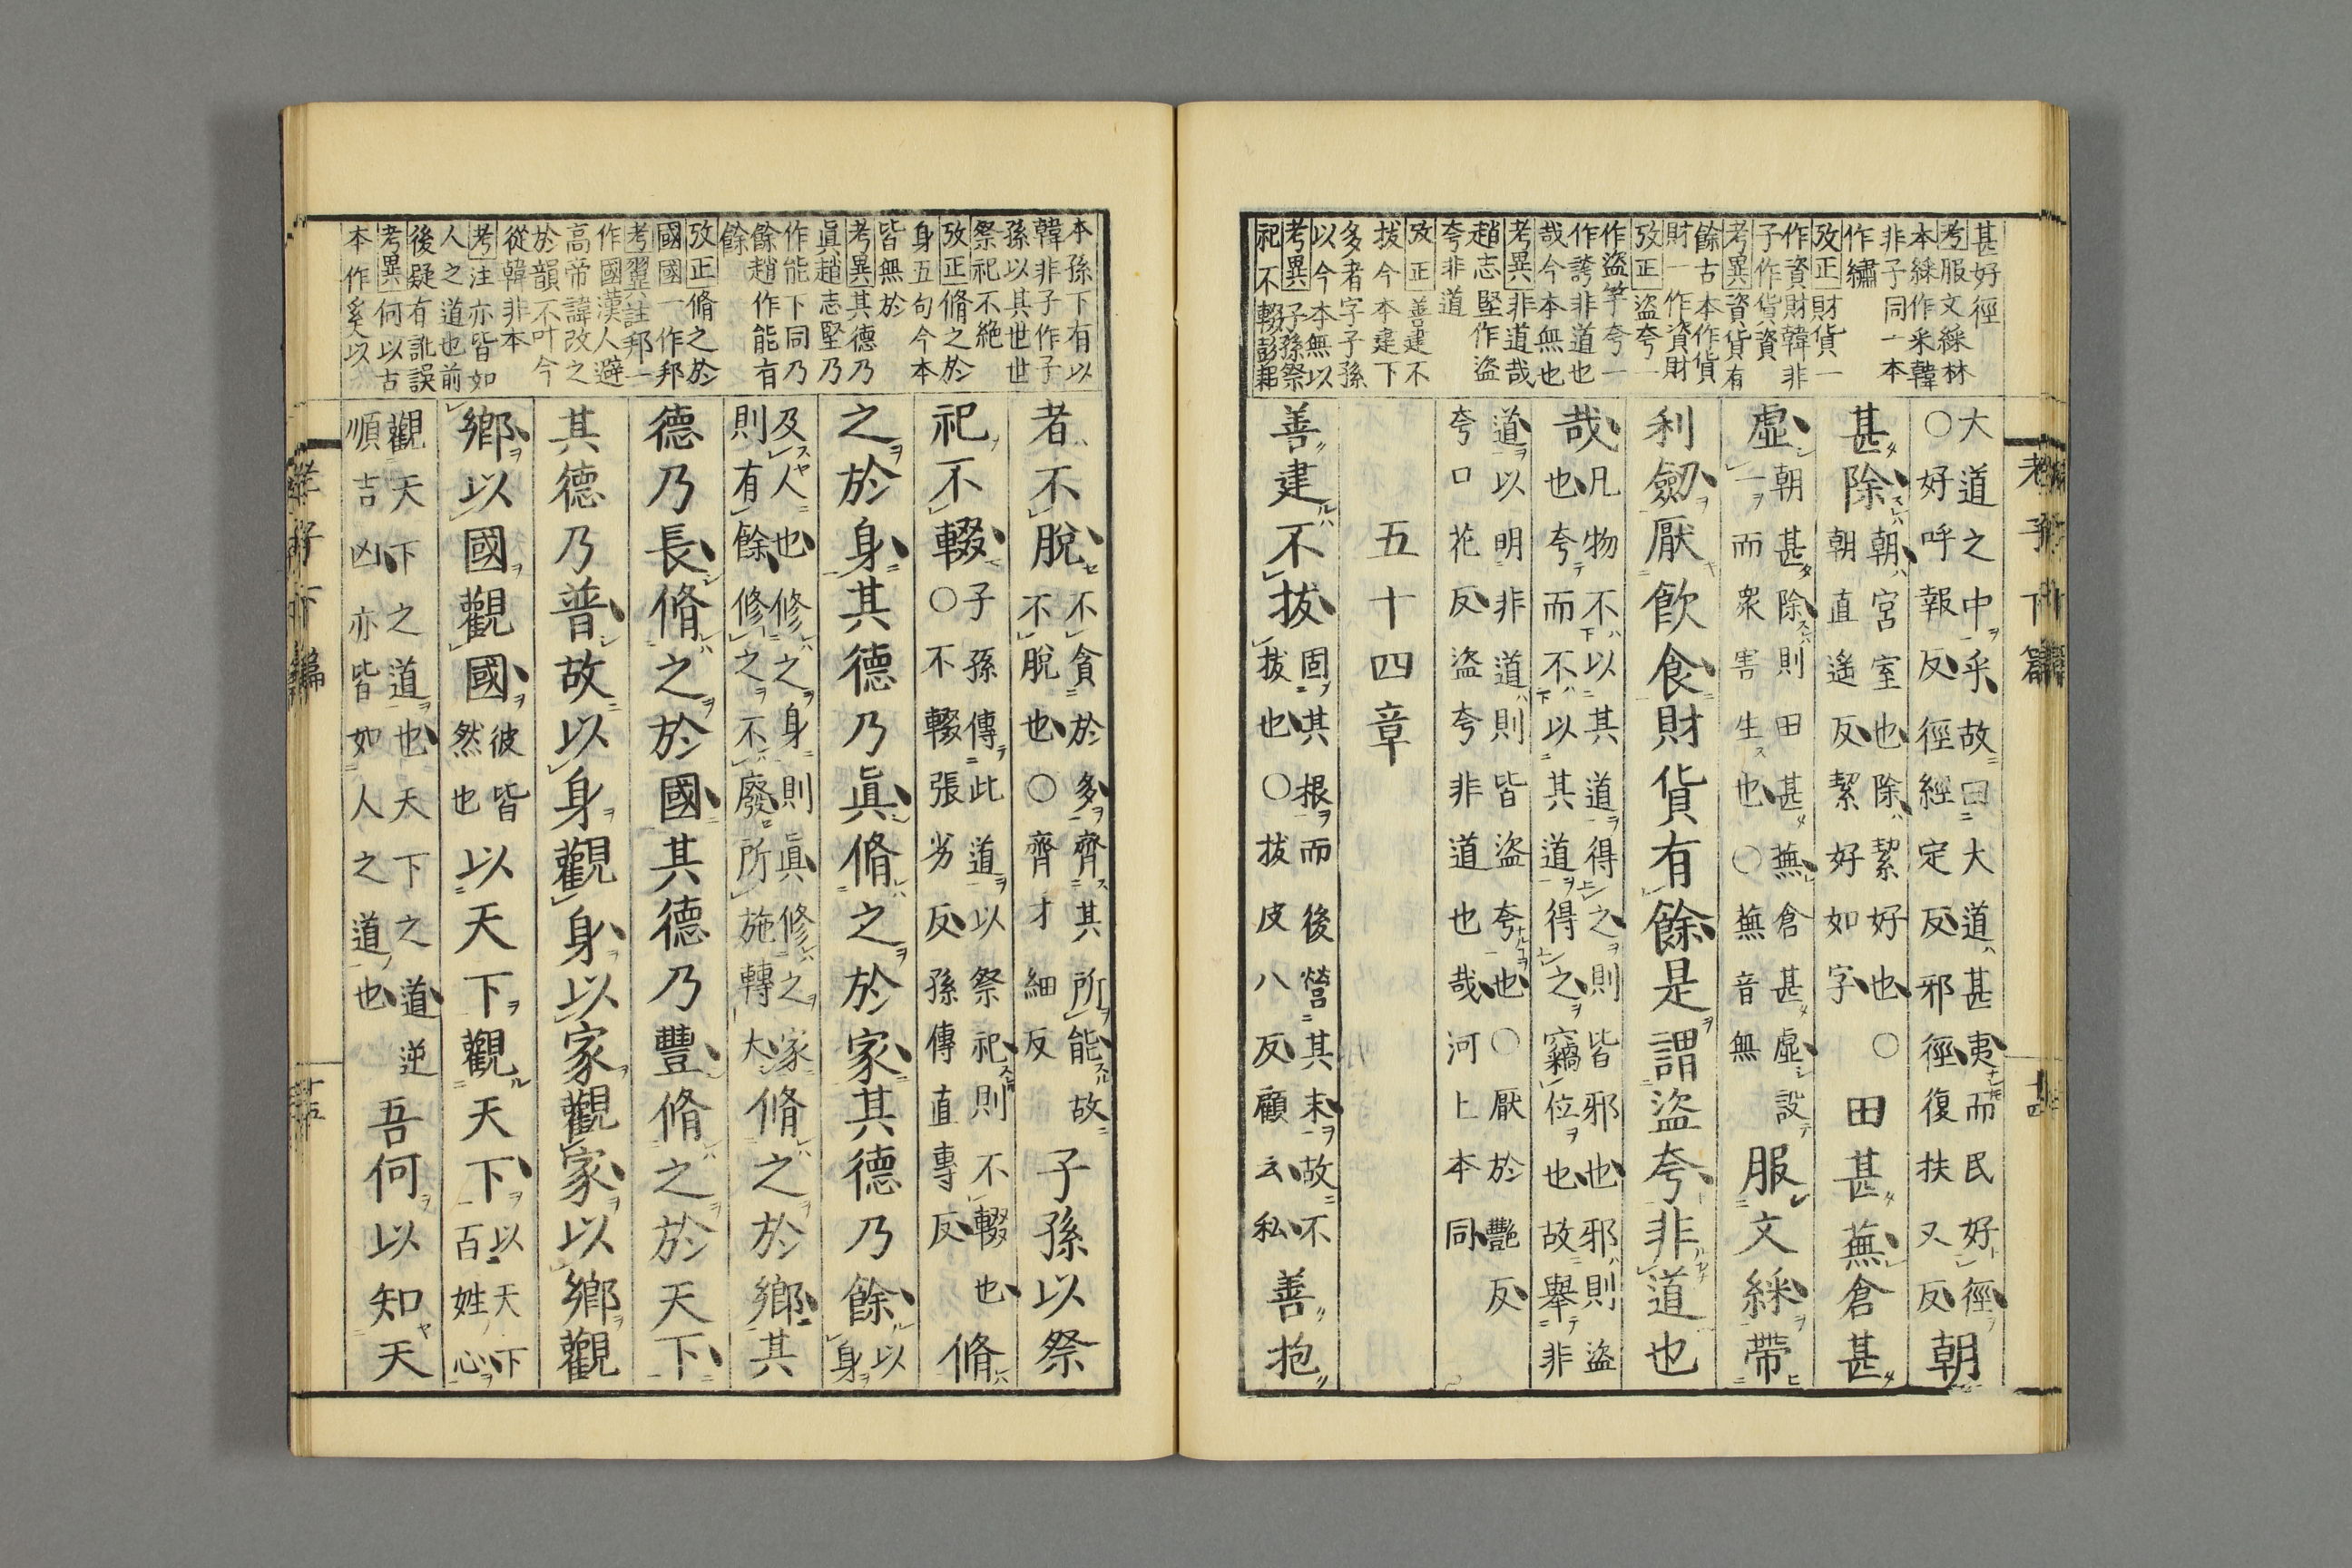 甚好徑
考服文綵林
本綵作采韓
非子同一本
作繡
攷正財貨一
作資財韓非
子作貨資
考異資貨有
餘古本作貨
財一作資財
攷正盜夸一
作盜竽夸一
作誇非道也
哉今本無也
考異非道哉
趙志堅作盜
夸非道
攷正善建不
拔今本建下
多者字子孫
以今本無以
考異子孫祭
祀不輟彭耜
大道之中乎故曰大道甚夷而民好徑
〇好呼報反徑經定反邪徑復扶又反
朝
甚除
朝宮室也除絜好也〇
朝直遙反絜好如字
田甚蕪倉甚
虛
朝甚除則田甚蕪倉甚虛設
一而衆害生也〇蕪音無
服文綵帶
利劒厭飲食財貨有餘是謂盜夸非道也
哉
凡物不以其道得之則皆邪也邪則盜
也夸而不以其道得之竊位也故舉非
道以明非道則皆盜夸也〇厭於艷反
夸口花反盜夸非道也哉河上本同
五十四章
善建不拔
固其根而後營其末故不
拔也〇拔皮八反顧云私
善抱
老子下篇
十四
本孫下有以
韓非子作子
孫以其世世
祭祀不絶
攷正脩之於
身五句今本
皆無於
考異其德乃
眞趙志堅乃
作能下同乃
餘趙作能有
餘
攷正脩之於
國國一作邦
考翼註邦一
作國漢人避
高帝諱改之
於韻不叶今
從韓非本
考注亦皆如
人之道也前
後疑有訛誤
考異何以古
本作奚以
者不脫
不貪於多齊其所能故
不脫也〇齊才細反
子孫以祭
祀不輟
子孫傳此道以祭祀則不輟也
〇不輟張劣反孫傳直專反
脩
之於身其德乃眞脩之於家其德乃餘
以
身
及人也修之身則眞修之家
則有餘修之不廢所施轉大
脩之於鄉其
德乃長脩之於國其德乃豐脩之於天下
其德乃普故以身觀身以家觀家以鄉觀
鄉以國觀國
彼皆
然也
以天下觀天下
以天下
百姓心
觀天下之道也天下之道逆
順吉凶亦皆如人之道也
吾何以知天
老子下篇
十五